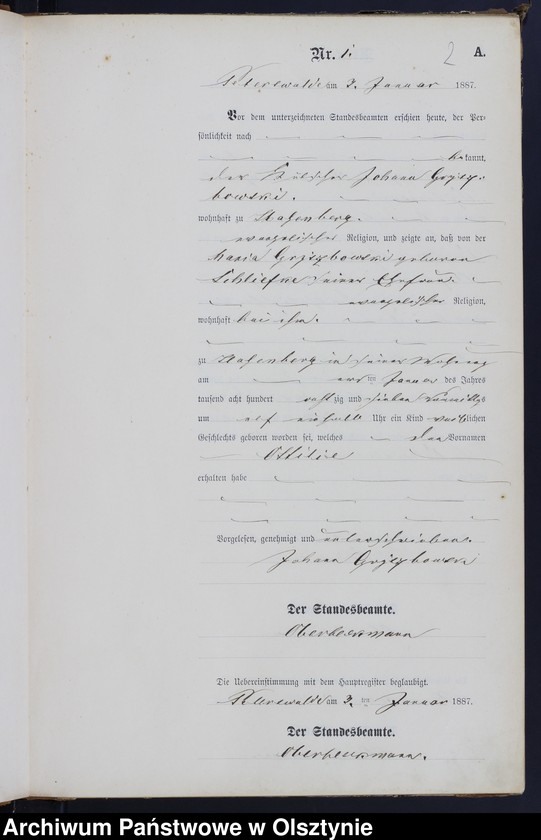 Nr. 1.
2
A.
am 3. Januar 1887.
Vor dem unterzeichneten Standesbeamten erschien heute, der Per-
sönlichkeit nach
bekannt,
der Johann Grzy-
bowski.
wohnhaft zu
evangelischer Religion, und zeigte an, daß von der
Maria Grzybowski geborenen
seiner Ehefrau
evangelischer Religion,
wohnhaft bei ihm.
zu in seiner Wohnung
am ersten Januar des Jahres
tausend acht hundert achtzig und sieben Vormittags
um elf einhalb Uhr ein Kind weiblichen
Geschlechts geboren worden sei, welches den Vornamen
Ottilie
erhalten habe
Vorgelesen, genehmigt und unterschrieben.
Johann Grzybowski
Der Standesbeamte.
Die Uebereinstimmung mit dem Hauptregister beglaubigt.
am 3. ten Januar 1887.
Der Standesbeamte.
Archiwum Państwowe w Olsztynie